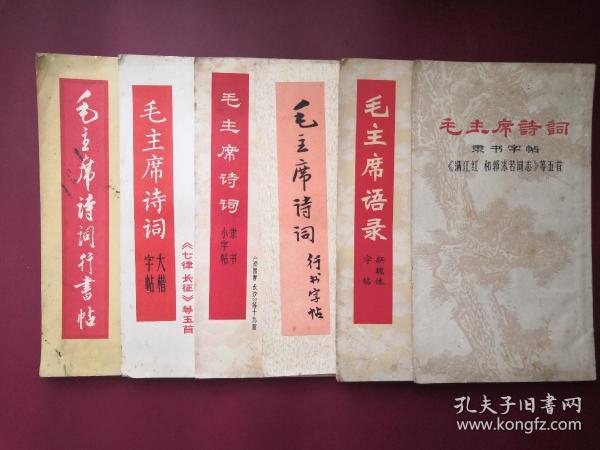 毛主席诗词行書帖
毛主席诗词
大楷
字帖
《七律 长征》等五首
毛主席诗词
隶书
小字帖
《沁园春 长沙》等十九首
毛主席诗词
行书字帖
毛主席语录
新魏体
字帖
毛主席詩詞
隶书字帖
《满江红 和郭沫若同志》等五首
孔夫子旧書网
www.kongfz.com